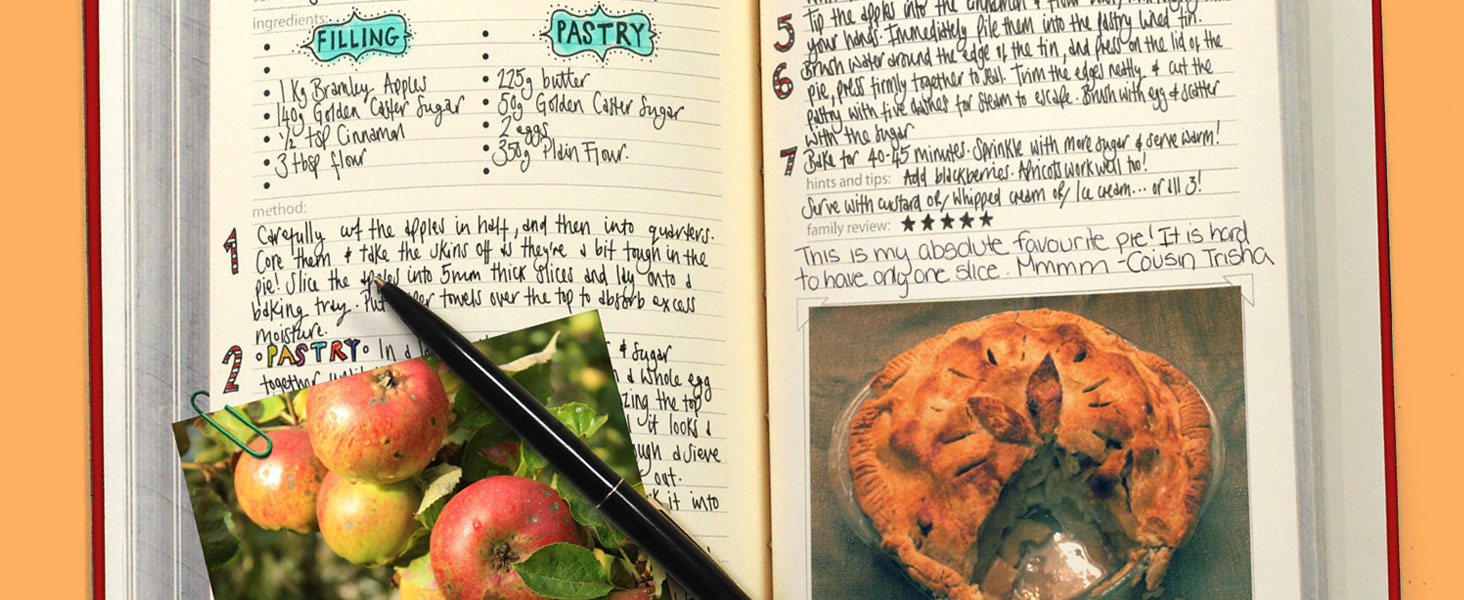 ingredients:
FILLING
PASTRY
1 Kg Bramley Apples
140g Golden Caster Sugar
½ tsp Cinnamon
3 tbsp flour
225g butter
50g Golden Caster Sugar
2 eggs
350g Plain Flour.
method:
1 Carefully cut the apples in half, and then into quarters.
Core them & take the skins off as they're a bit tough in the
pie! Slice the apples into 5mm thick slices and lay onto a
baking tray. Put towels over the top to absorb excess
moisture.
2 PASTRY In a & sugar
together a whole egg
the top
it looks a
a sieve
out.
it into
5 Tip the apples into the cinnamon & flour
your hands. Immediately pile them into the pastry lined tin.
6 Brush water around the edge of the tin, and press on the lid of the
pie, press firmly together to seal. Trim the edges neatly & cut the
pastry with five dashes for steam to escape. Brush with egg & scatter
with the sugar
7 Bake for 40-45 minutes. Sprinkle with more sugar & serve warm!
hints and tips: Add blackberries. Apricots work well too!
Serve with custard or/ whipped cream or/ Ice cream... or all 3!
family review: ★★★★★
This is my absolute favourite pie! It is hard
to have only one slice. Mmmm - Cousin Trisha